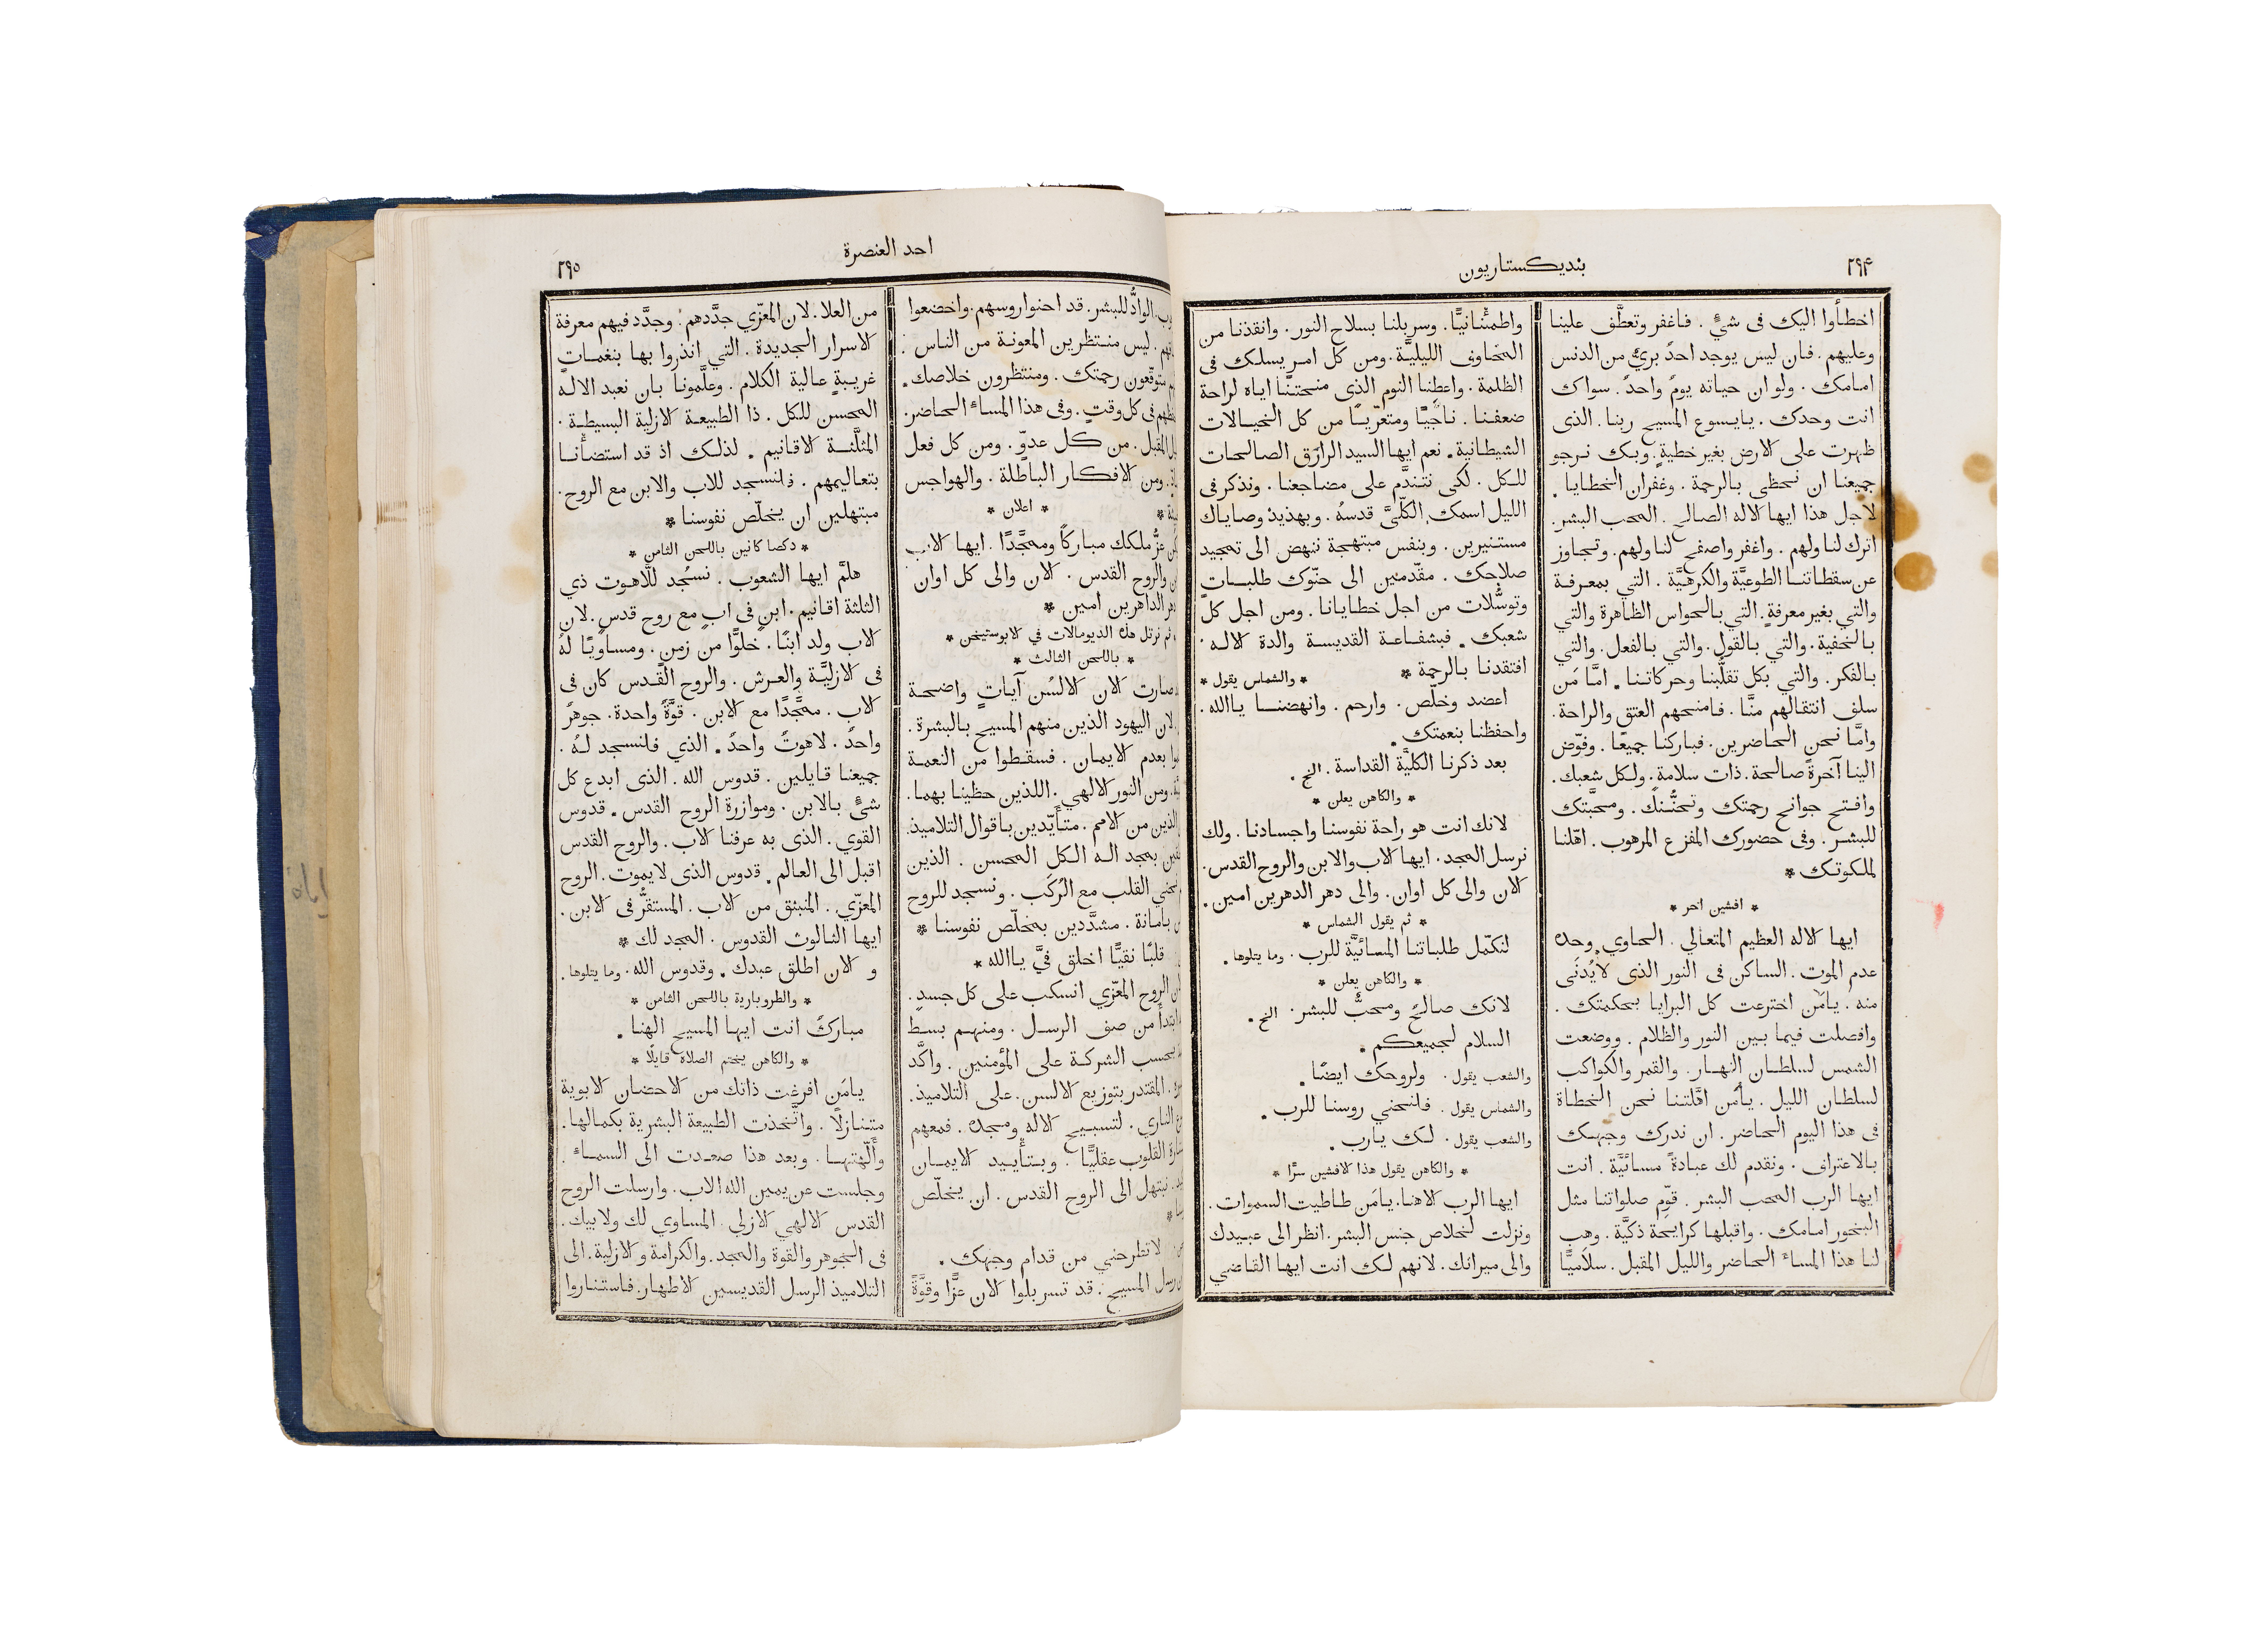 ٢٩٤
بنديكستاريون
اخطأوا اليك فى شيءٍ . فاغفر وتعطَّف علينا
وعليهم . فان ليس يوجد احدٌ بريٌّ من الدنس
امامك . ولو ان حياته يومٌ واحدٌ . سواك
انت وحدك . يا يسوع المسيح ربنا . الذى
ظهرت على الارض بغير خطيةٍ . وبك نرجو
جميعنا ان نحظى بالرحمة . وغفران الخطايا .
لاجل هذا ايها الاله الصالح . المحب البشر .
اترك لنا ولهم . واغفر واصفح لنا ولهم . وتجاوز
عن سقطاتنا الطوعيَّة والكرهيَّة . التي بمعرفة
والتي بغير معرفةٍ . التي بالحواس الظاهرة والتي
بالخفية . والتي بالقول . والتي بالفعل . والتي
بالفكر . والتي بكل تقلُّبنا وحركاتنا . امَّا مَن
سلف انتقالهم منَّا . فامنحهم العتق والراحة .
وامَّا نحن الحاضرين . فباركنا جميعًا . وفوّض
الينا آخرةً صالحة . ذات سلامةٍ . ولكل شعبك .
وافتح جوانح رحمتك وتحنُّنك . ومحبَّتك
للبشر . وفى حضورك المفزع المرهوب . اهّلنا
لملكوتك *
* افشين اخر *
ايها الاله العظيم المتعالي . الحاوي وحده
عدم الموت . الساكن فى النور الذى لا يُدنَى
منه . يا مَن اخترعت كل البرايا بحكمتك .
وافصلت فيما بين النور والظلام . ووضعت
الشمس لسلطان النهار . والقمر والكواكب
لسلطان الليل . يا مَن اهَّلتنا نحن الخطاة
فى هذا اليوم الحاضر . ان ندرك وجهك
بالاعتراف . ونقدم لك عبادةً مسائيَّة . انت
ايها الرب المحب البشر . قوّم صلواتنا مثل
البخور امامك . واقبلها كرايحة ذكيَّة . وهب
لنا هذا المساء الحاضر والليل المقبل . سلاميًّا
واطمئنانيًّا . وسربلنا بسلاح النور . وانقذنا من
المخاوف الليليَّة . ومن كل امرٍ يسلك فى
الظلمة . واعطِنا النوم الذى منحتنا اياه لراحة
ضعفنا . ناجيًا ومتعرّيًا من كل الخيالات
الشيطانية . نعم ايها السيد الرازق الصالحات
للكل . لكى نتندَّم على مضاجعنا . ونذكر فى
الليل اسمك الكلّيَّ قدسهُ . وبهذيذ وصاياك
مستنيرين . وبنفس مبتهجة ننهض الى تمجيد
صلاحك . مقدّمين الى حنّوك طلباتٍ
وتوسُّلات من اجل خطايانا . ومن اجل كل
شعبك . فبشفاعة القديسة والدة الاله .
افتقدنا بالرحمة * * والشماس يقول *
اعضد وخلّص . وارحم . وانهضنا يا الله .
واحفظنا بنعمتك .
بعد ذكرنا الكليَّة القداسة . الخ .
* والكاهن يعلن *
لانك انت هو راحة نفوسنا واجسادنا . ولك
نرسل المجد . ايها الاب والابن والروح القدس .
الان والى كل اوان . والى دهر الدهرين امين .
* ثم يقول الشماس *
لنكمّل طلباتنا المسائيَّة للرب . وما يتلوها .
* والكاهن يعلن *
لانك صالحٌ ومحبٌّ للبشر . الخ .
السلام لجميعكم .
والشعب يقول . ولروحك ايضًا .
والشماس يقول . فلنحني روسنا للرب .
والشعب يقول . لك يا رب .
* والكاهن يقول هذا الافشين سرًّا *
ايها الرب الاهنا . يا مَن طاطيت السموات .
ونزلت لخلاص جنس البشر . انظر الى عبيدك
والى ميراثك . لانهم لك انت ايها القاضي
احد العنصرة
٢٩٥
الوادُّ للبشر . قد احنوا روسهم . واخضعوا
. ليس منتظرين المعونة من الناس .
متوقّعون رحمتك . ومنتظرون خلاصك .
فى كل وقتٍ . وفى هذا المساء الحاضر .
المقبل . من كل عدوٍّ . ومن كل فعل
. ومن الافكار الباطلة . والهواجس
* * اعلان *
عزُّ ملكك مباركًا وممجَّدًا . ايها الاب
والروح القدس . الان والى كل اوان
الداهرين امين *
ثم نرتل هذه الذيومالات في الابوستيخن *
* باللحن الثالث *
صارت الان الالسُن آياتٍ واضحة
لان اليهود الذين منهم المسيح بالبشرة .
بعدم الايمان . فسقطوا من النعمة
. ومن النور الالهي . اللذين حظينا بهما .
الذين من الامم . متأَيّدين باقوال التلاميذ .
بمجد اله الكل المحسن . الذين
نحني القلب مع الرُكَب . ونسجد للروح
بامانة . مشدَّدين بمخلّص نفوسنا *
قلبًا نقيًّا اخلق فيَّ يا الله *
الروح المعزّي انسكب على كل جسدٍ .
ابتدأ من صف الرسل . ومنهم بسط
بحسب الشركة على المؤمنين . واكَّد
. المقتدر بتوزيع الالسن . على التلاميذ .
الناري . لتسبيح الاله ومجده . فمعهم
القلوب عقليًّا . وبتأييد الايمان
نبتهل الى الروح القدس . ان يخلّص
*
لا تطرحني من قدام وجهك .
رسل المسيح . قد تسربلوا الان عزًّا وقوَّةً
من العلا . لان المعزّي جدَّدهم . وجدَّد فيهم معرفة
الاسرار الجديدة . التي انذروا بها بنغماتٍ
غريبةٍ عالية الكلام . وعلَّمونا بان نعبد الاله
المحسن للكل . ذا الطبيعة الازلية البسيطة .
المثلَّثة الاقانيم . لذلك اذ قد استضأنا
بتعاليمهم . فلنسجد للاب والابن مع الروح .
مبتهلين ان يخلّص نفوسنا *
* ذكصا كانين باللحن الثامن *
هلمَّ ايها الشعوب . نسجُد للَّاهوت ذي
الثلثة اقانيم . ابن فى ابٍ مع روح قدسٍ . لان
الاب ولد ابنًا . خلوًّا من زمنٍ . ومساويًا لهُ
فى الازليَّة والعرش . والروح القدس كان فى
الاب . ممجَّدًا مع الابن . قوَّةٌ واحدة . جوهرٌ
واحدٌ . لاهوتٌ واحدٌ . الذي فلنسجد لهُ .
جميعنا قايلين . قدوس الله . الذى ابدع كل
شيءٍ بالابن . وموازرة الروح القدس . قدوس
القوي . الذى به عرفنا الاب . والروح القدس
اقبل الى العالم . قدوس الذى لا يموت . الروح
المعزّي . المنبثق من الاب . المستقرُّ فى الابن .
ايها الثالوث القدوس . المجد لك *
و الان اطلق عبدك . وقدوس الله . وما يتلوها .
* والطروبارية باللحن الثامن *
مباركٌ انت ايها المسيح الهنا .
* والكاهن يختم الصلاة قايلًا *
يا مَن افرغت ذاتك من الاحضان الابوية
متنازلًا . واتَّخذت الطبيعة البشرية بكمالها .
وأَلَّهتها . وبعد هذا صعدت الى السماء .
وجلست عن يمين الله الاب . وارسلت الروح
القدس الالهي الازلي . المساوي لك ولابيك .
فى الجوهر والقوة والمجد . والكرامة والازلية . الى
التلاميذ الرسل القديسين الاطهار . فاستناروا